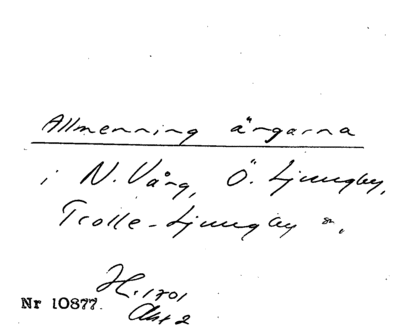 Allmenning ängarna
i N. Vång, Ö. Ljungby,
Trolle-Ljungby m.
H. 1701
Akt 2
Nr 10877.